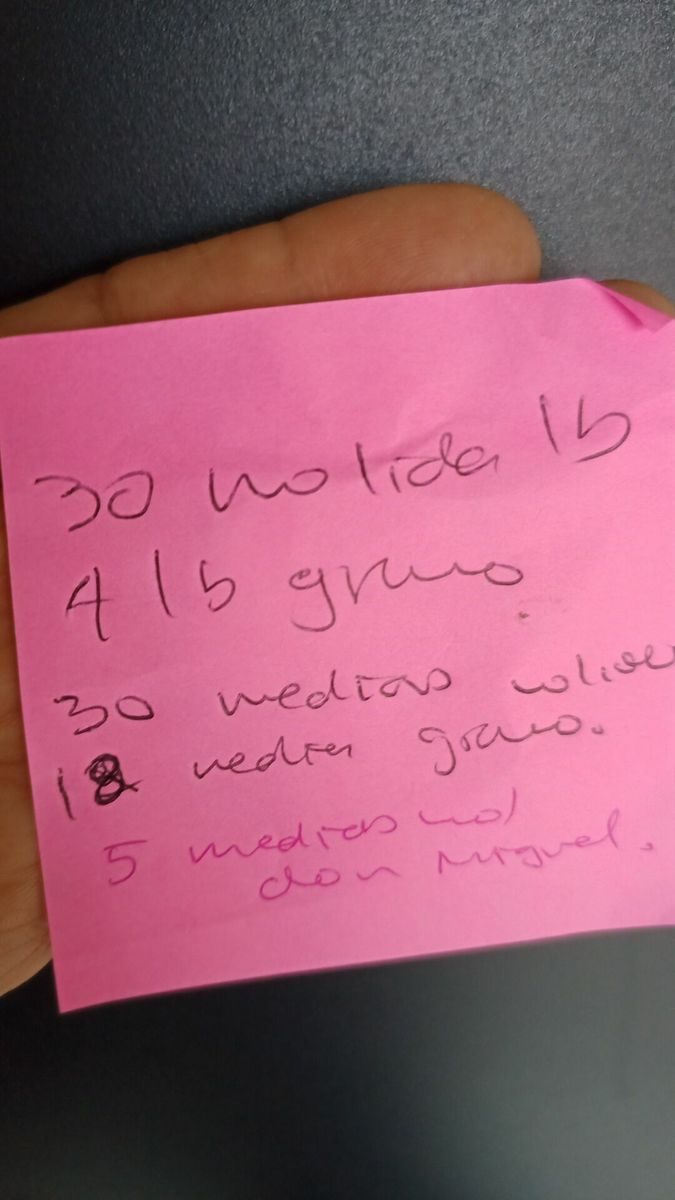 30 molida lb
4 lb grano
30 medias molida
18 media grano.
5 medias mol
don Miguel.